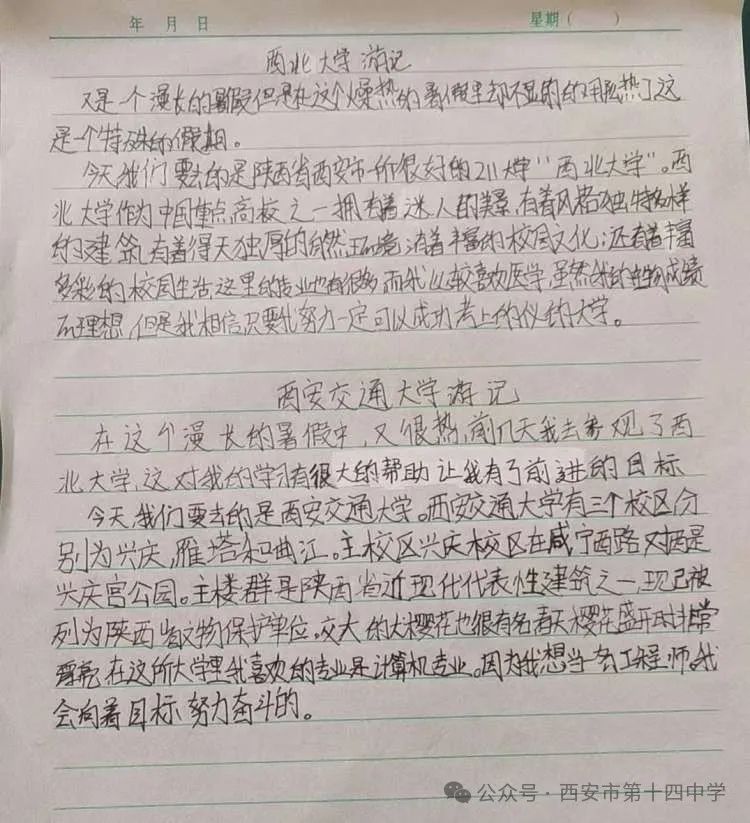 年 月 日 星期( )
西北大学游记
又是一个漫长的暑假但是在这个燥热的暑假里却不显的的那么热了这
是一个特殊的假期。
今天我们要去的是陕西省西安市一所很好的211大学“西北大学”。西
北大学作为中国重点高校之一拥有着迷人的美景,有着风格独特多样
的建筑,有着得天独厚的自然环境,有着丰富的校园文化;还有着丰富
多彩的校园生活,这里的专业也有很多,而我比较喜欢医学,虽然我的生物成绩
不理想,但是我相信只要我努力一定可以成功考上的仪的大学。
西安交通大学游记
在这个漫长的暑假中,又很热,前几天我去参观了西
北大学,这对我的学习有很大的帮助让我有了前进的目标
今天,我们要去的是西安交通大学。西安交通大学有三个校区分
别为兴庆,雁塔和曲江。主校区兴庆校区在咸宁西路对面是
兴庆宫公园。主楼群是陕西省近现代代表性建筑之一,现已被
列为陕西省文物保护单位。交大的大樱花也很有名春天樱花盛开时非常
漂亮,在这所大学里我喜欢的专业是计算机专业。因为我想当一名工程师。我
会向着目标努力奋斗的。
公众号·西安市第十四中学